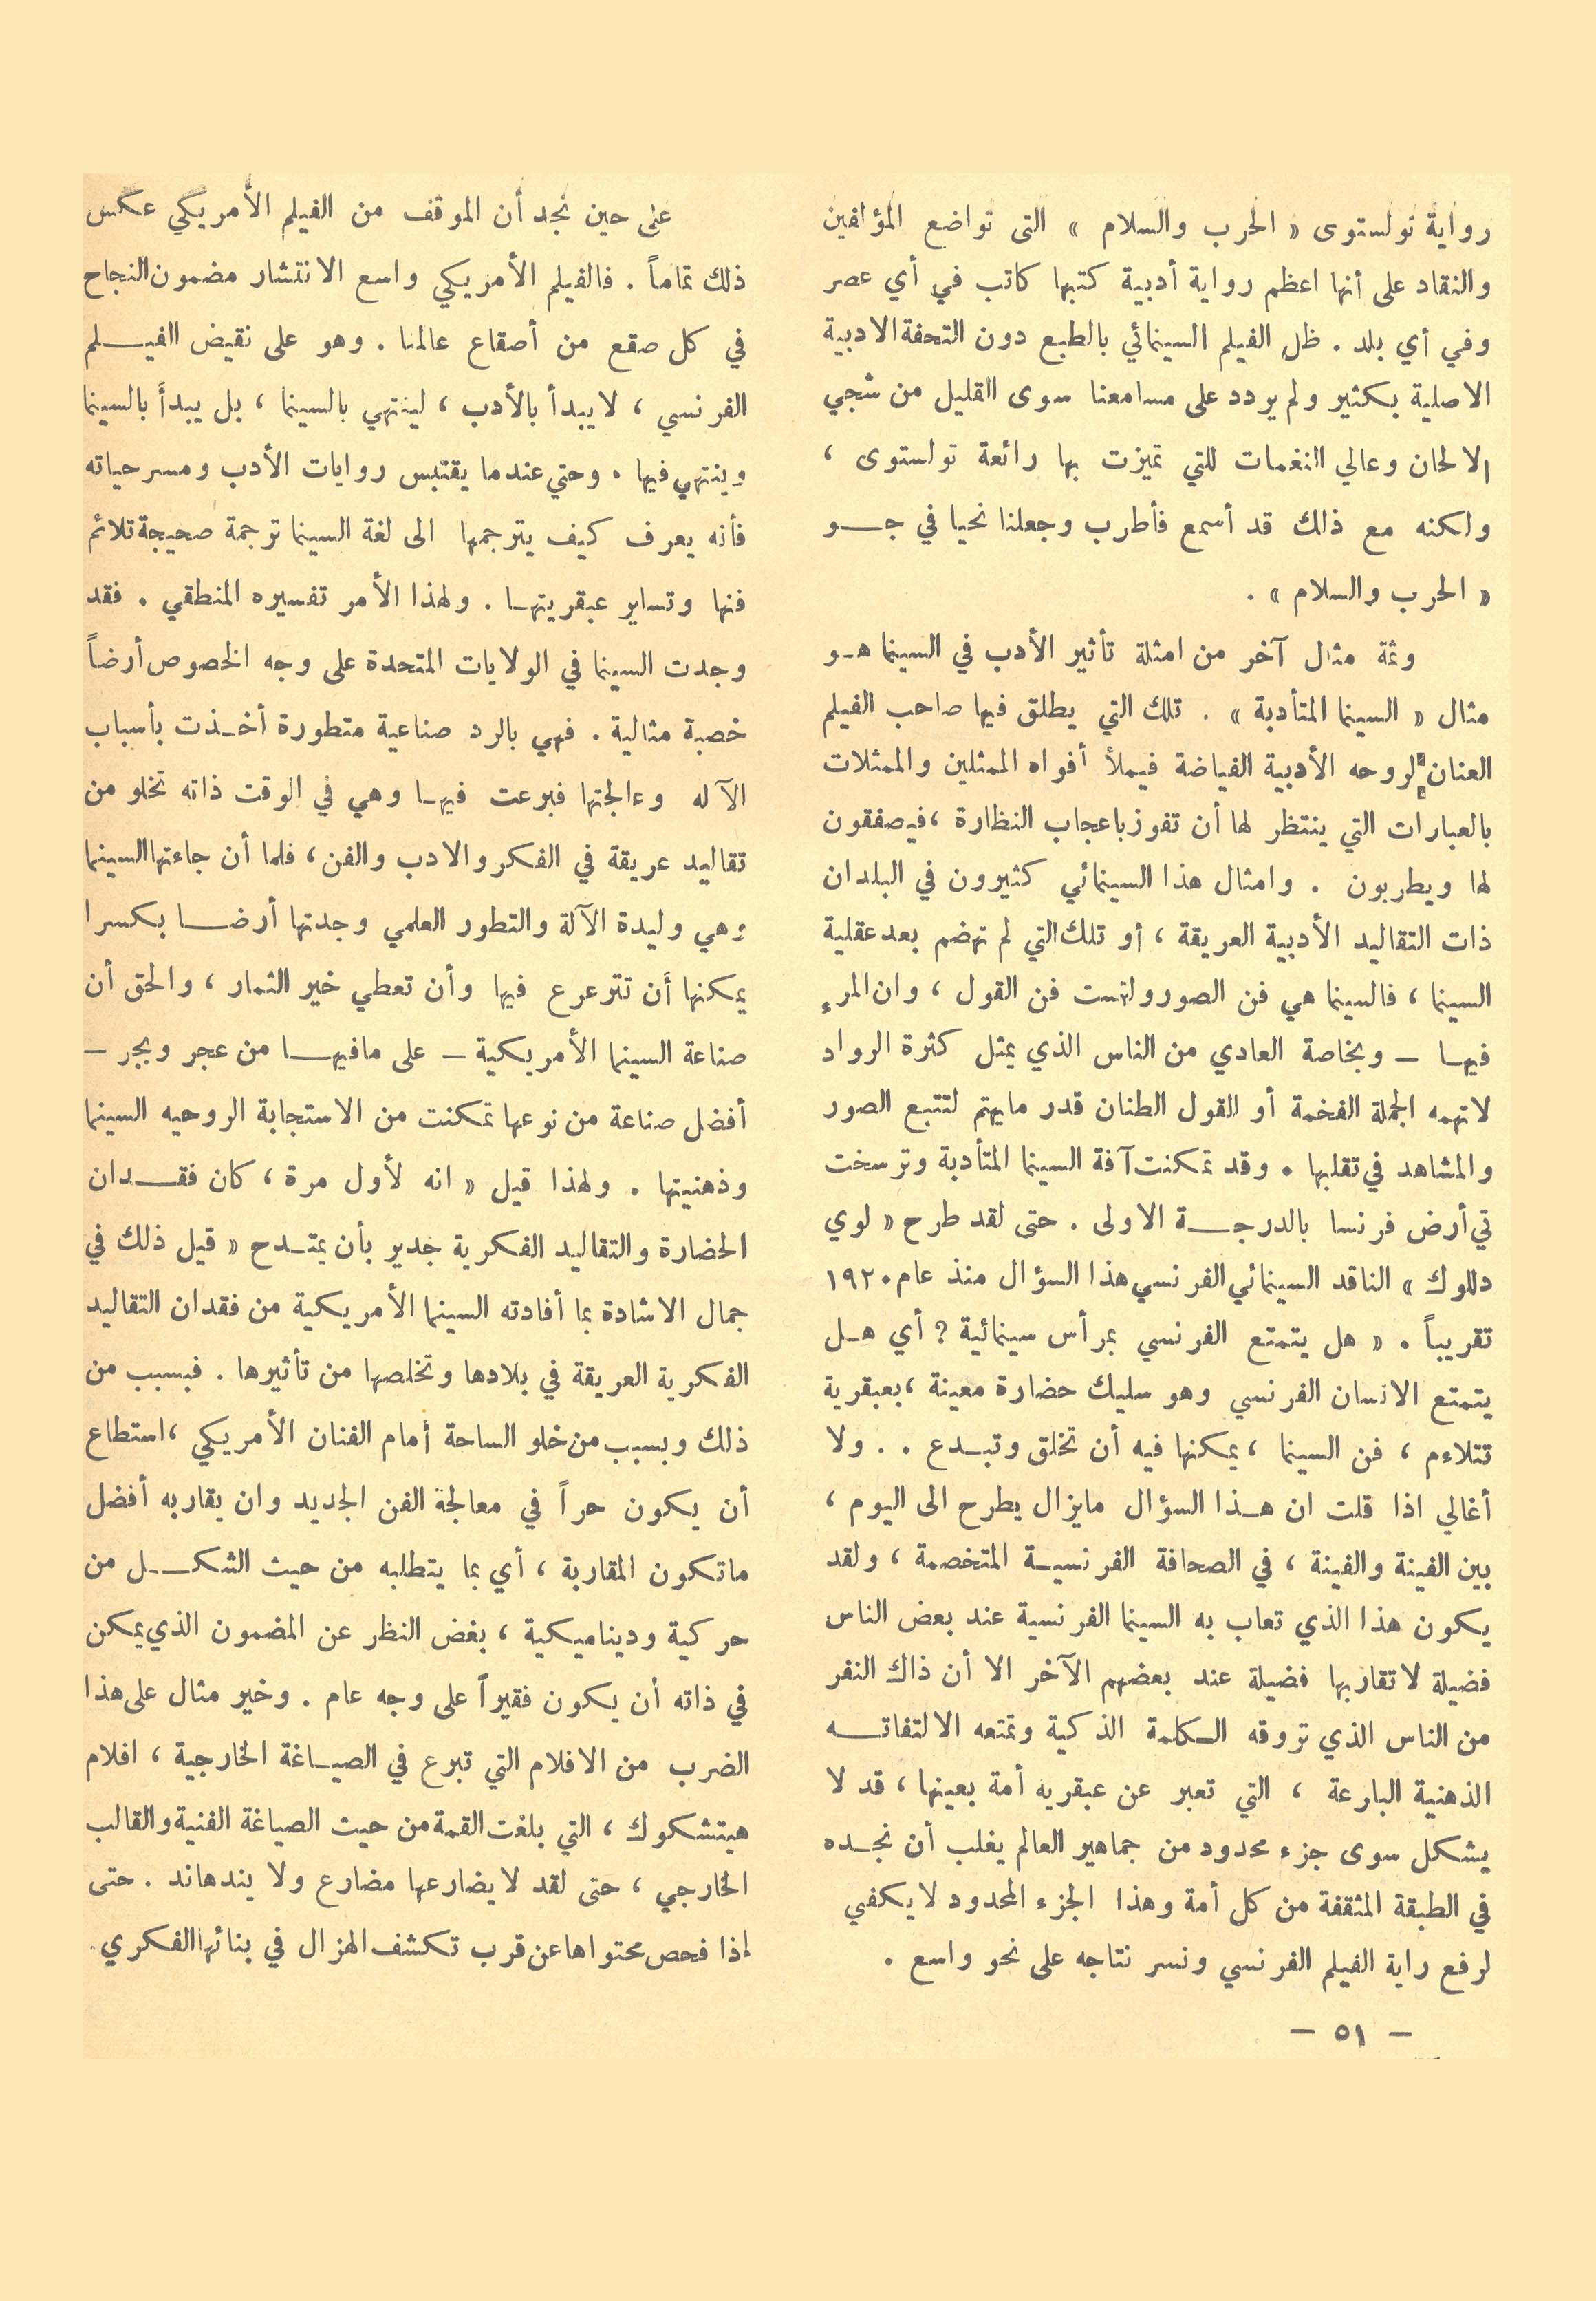 رواية تولستوى « الحرب والسلام » التى تواضع المؤلفين
والنقاد على أنها اعظم رواية أدبية كتبها كاتب في أي عصر
وفي أي بلد . ظل الفيلم السينمائي بالطبع دون التحفة الادبية
الاصلية بكثير ولم يردد على مسامعنا سوى القليل من شجي
الالحان وعالي النغمات للتي تميزت بها رائعة تولستوى ،
ولكنه مع ذلك قد أسمع فأطرب وجعلنا نحيا في جـــو
« الحرب والسلام » .
وثمة مثال آخر من امثلة تأثير الأدب في السينما هـو
مثال « السينما المتأدبة » . تلك التي يطلق فيها صاحب الفيلم
العنان لروحه الأدبية الفياضة فيملأ أفواه الممثلين والممثلات
بالعبارات التي ينتظر لها أن تفوز باعجاب النظارة ، فيصفقون
لها ويطربون . وامثال هذا السينمائي كثيرون في البلدان
ذات التقاليد الأدبية العريقة ، أو تلك التي لم تهضم بعد عقلية
السينما ، فالسينما هي فن الصور وليست فن القول ، وان المرء
فيهـا – وبخاصة العادي من الناس الذي يمثل كثرة الرواد
لاتهمه الجملة الفخمة أو القول الطنان قدر مايهتم لتتبع الصور
والمشاهد في تقلبها . وقد تمكنت آفة السينما المتأدبة وترسخت
في أرض فرنسا بالدرجـــة الاولى . حتى لقد طرح « لوي
دللوك » الناقد السينمائي الفرنسي هذا السؤال منذ عام ١٩٢٠
تقريباً . « هل يتمتع الفرنسي بمرأس سينمائية ؟ أي هـل
يتمتع الانسان الفرنسي وهو سليك حضارة معينة ، بعبقرية
تتلاءم ، فن السينما ، يمكنها فيه أن تخلق وتبـدع . . ولا
أغالي اذا قلت ان هـذا السؤال مايزال يطرح الى اليوم ،
بين الفينة والفينة ، في الصحافة الفرنسيـة المتخصصة ، ولقد
يكون هذا الذي تعاب به السينما الفرنسية عند بعض الناس
فضيلة لاتقاربها فضيلة عند بعضهم الآخر الا أن ذاك النفر
من الناس الذي تروقه الكلمة الذكية وتمتعه الالتفاتـــه
الذهنية البارعة ، التي تعبر عن عبقريه أمة بعينها ، قد لا
يشكل سوى جزء محدود من جماهير العالم يغلب أن نجـده
في الطبقة المثقفة من كل أمة وهذا الجزء المحدود لايكفي
لرفع راية الفيلم الفرنسي ونسر نتاجه على نحو واسع .
على حين نجد أن الموقف من الفيلم الأمريكي عكس
ذلك تماماً . فالفيلم الأمريكي واسع الانتشار مضمون النجاح
في كل صقع من أصقاع عالمنا . وهو على نقيض الفيـــلم
الفرنسي ، لايبدأ بالأدب ، لينتهي بالسينما ، بل يبدأ بالسينما
وينتهي فيها . وحتي عندما يقتبس روايات الأدب ومسرحياته
فأنه يعرف كيف يترجمها الى لغة السينما ترجمة صحيحة تلائم
فنها وتساير عبقريتهـا . ولهذا الأمر تفسيره المنطقي . فقد
وجدت السينما في الولايات المتحدة على وجه الخصوص أرضاً
خصبة مثالية . فهي بالرد صناعية متطورة أخـذت بأسباب
الآله وعالجتها فبرعت فيهـا وهي في الوقت ذاته تخلو من
تقاليد عريقة في الفكر والادب والفن ، فلما أن جاءتها السينما
وهي وليدة الآلة والتطور العلمي وجدتها أرضـــا بكسرا
يمكنها أن تترعرع فيها وأن تعطي خير الثمار ، والحق أن
صناعة السينما الأمريكية – على مافيهـــا من عجر وبجر –
أفضل صناعة من نوعها تمكنت من الاستجابة الروحيه السينما
وذهنيتها . ولهذا قيل « انه لأول مرة ، كان فقـــدان
الحضارة والتقاليد الفكرية جدير بأن يمتـدح « قيل ذلك في
جمال الاشادة بما أفادته السينما الأمريكية من فقدان التقاليد
الفكرية العريقة في بلادها وتخلصها من تأثيرها . فبسبب من
ذلك وبسبب من خلو الساحة أمام الفنان الأمريكي ، استطاع
أن يكون حراً في معالجة الفن الجديد وان يقاربه أفضل
ماتكون المقاربة ، أي بما يتطلبه من حيث الشكـــل من
حركية وديناميكية ، بغض النظر عن المضمون الذي يمكن
في ذاته أن يكون فقيراً على وجه عام . وخير مثال على هذا
الضرب من الافلام التي تبرع في الصيـاغة الخارجية ، افلام
هيتشكوك ، التي بلغت القمة من حيث الصياغة الفنية والقالب
الخارجي ، حتى لقد لايضارعها مضارع ولا يندهاند . حتى
إذا فحص محتواها عن قرب تكشف الهزال في بنائها الفكري.
– ٥١ –